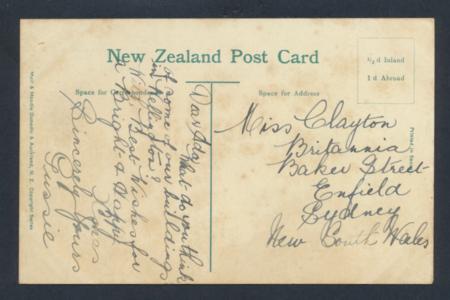 New Zealand Post Card
½ d Inland
1 d Abroad
Space for Correspondence
Space for Address
Dear Ada,
What do you think
of some of our buildings
in Wellington?
With Best Wishes for
a Bright & Happy
Xmas
Sincerely Yours
Tussie
Miss Clayton
Britannia
Baker Street
Enfield
Sydney
New South Wales
Muir & Moodie Dunedin & Auckland, N. Z. Copyright Series
Printed in